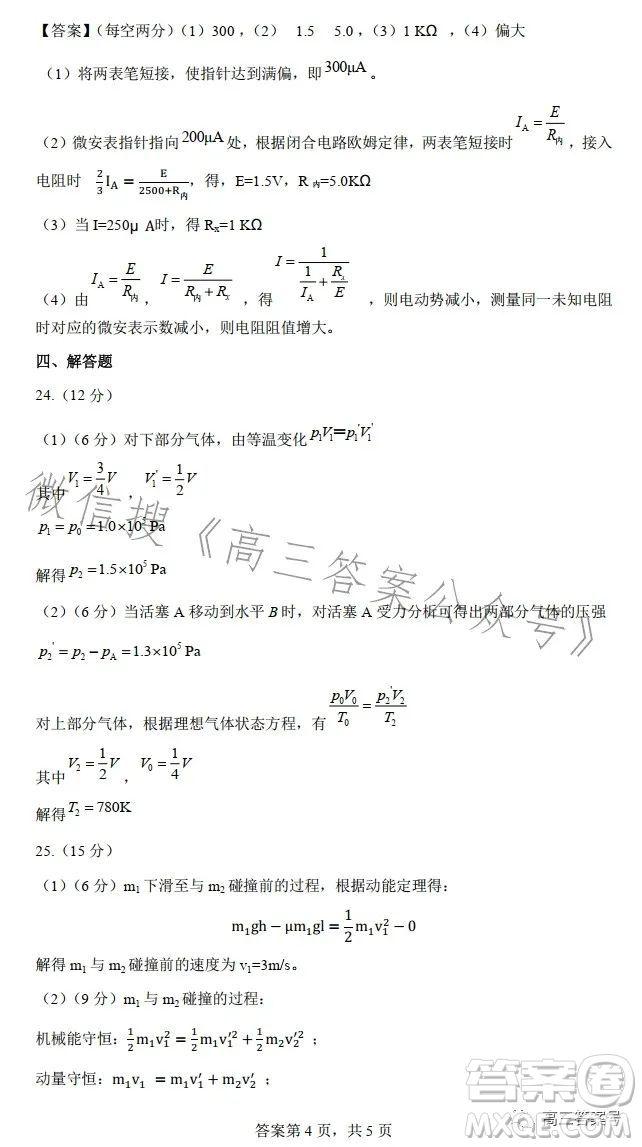 【答案】（每空两分）（1）300，（2） 1.5 5.0，（3）1 KΩ ，（4）偏大
（1）将两表笔短接，使指针达到满偏，即300μA。
（2）微安表指针指向200μA处，根据闭合电路欧姆定律，两表笔短接时 I_A=E/R_内，接入
电阻时 2/3 I_A=E/(2500+R_内)，得，E=1.5V，R 内=5.0KΩ
（3）当 I=250μ A时，得 Rx=1 KΩ
（4）由 I_A=E/R_内，I=E/(R_内+R_x)，得 I=1/(1/I_A+R_x/E)，则电动势减小，测量同一未知电阻
时对应的微安表示数减小，则电阻阻值增大。
四、解答题
24.（12 分）
（1）（6 分）对下部分气体，由等温变化 p₁V₁=p₁'V₁'
其中 V₁=3/4 V，V₁'=1/2 V
p₁=p₀=1.0×10⁵ Pa
解得 p₂=1.5×10⁵ Pa
（2）（6 分）当活塞 A 移动到水平 B 时，对活塞 A 受力分析可得出两部分气体的压强
p₂'=p₂−p_A=1.3×10⁵ Pa
对上部分气体，根据理想气体状态方程，有 p₀V₀/T₀=p₂'V₂/T₂
其中 V₂=1/2 V，V₀=1/4 V
解得 T₂=780K
25.（15 分）
（1）（6 分）m₁ 下滑至与 m₂ 碰撞前的过程，根据动能定理得：
m₁gh−μm₁gl=1/2 m₁v₁²−0
解得 m₁ 与 m₂ 碰撞前的速度为 v₁=3m/s。
（2）（9 分）m₁ 与 m₂ 碰撞的过程：
机械能守恒：1/2 m₁v₁²=1/2 m₁v₁′²+1/2 m₂v₂′²；
动量守恒：m₁v₁ =m₁v₁′+m₂v₂′；
答案第 4 页，共 5 页
微信搜《高三答案公众号》
高三答案号
答案圈
MXQE.COM